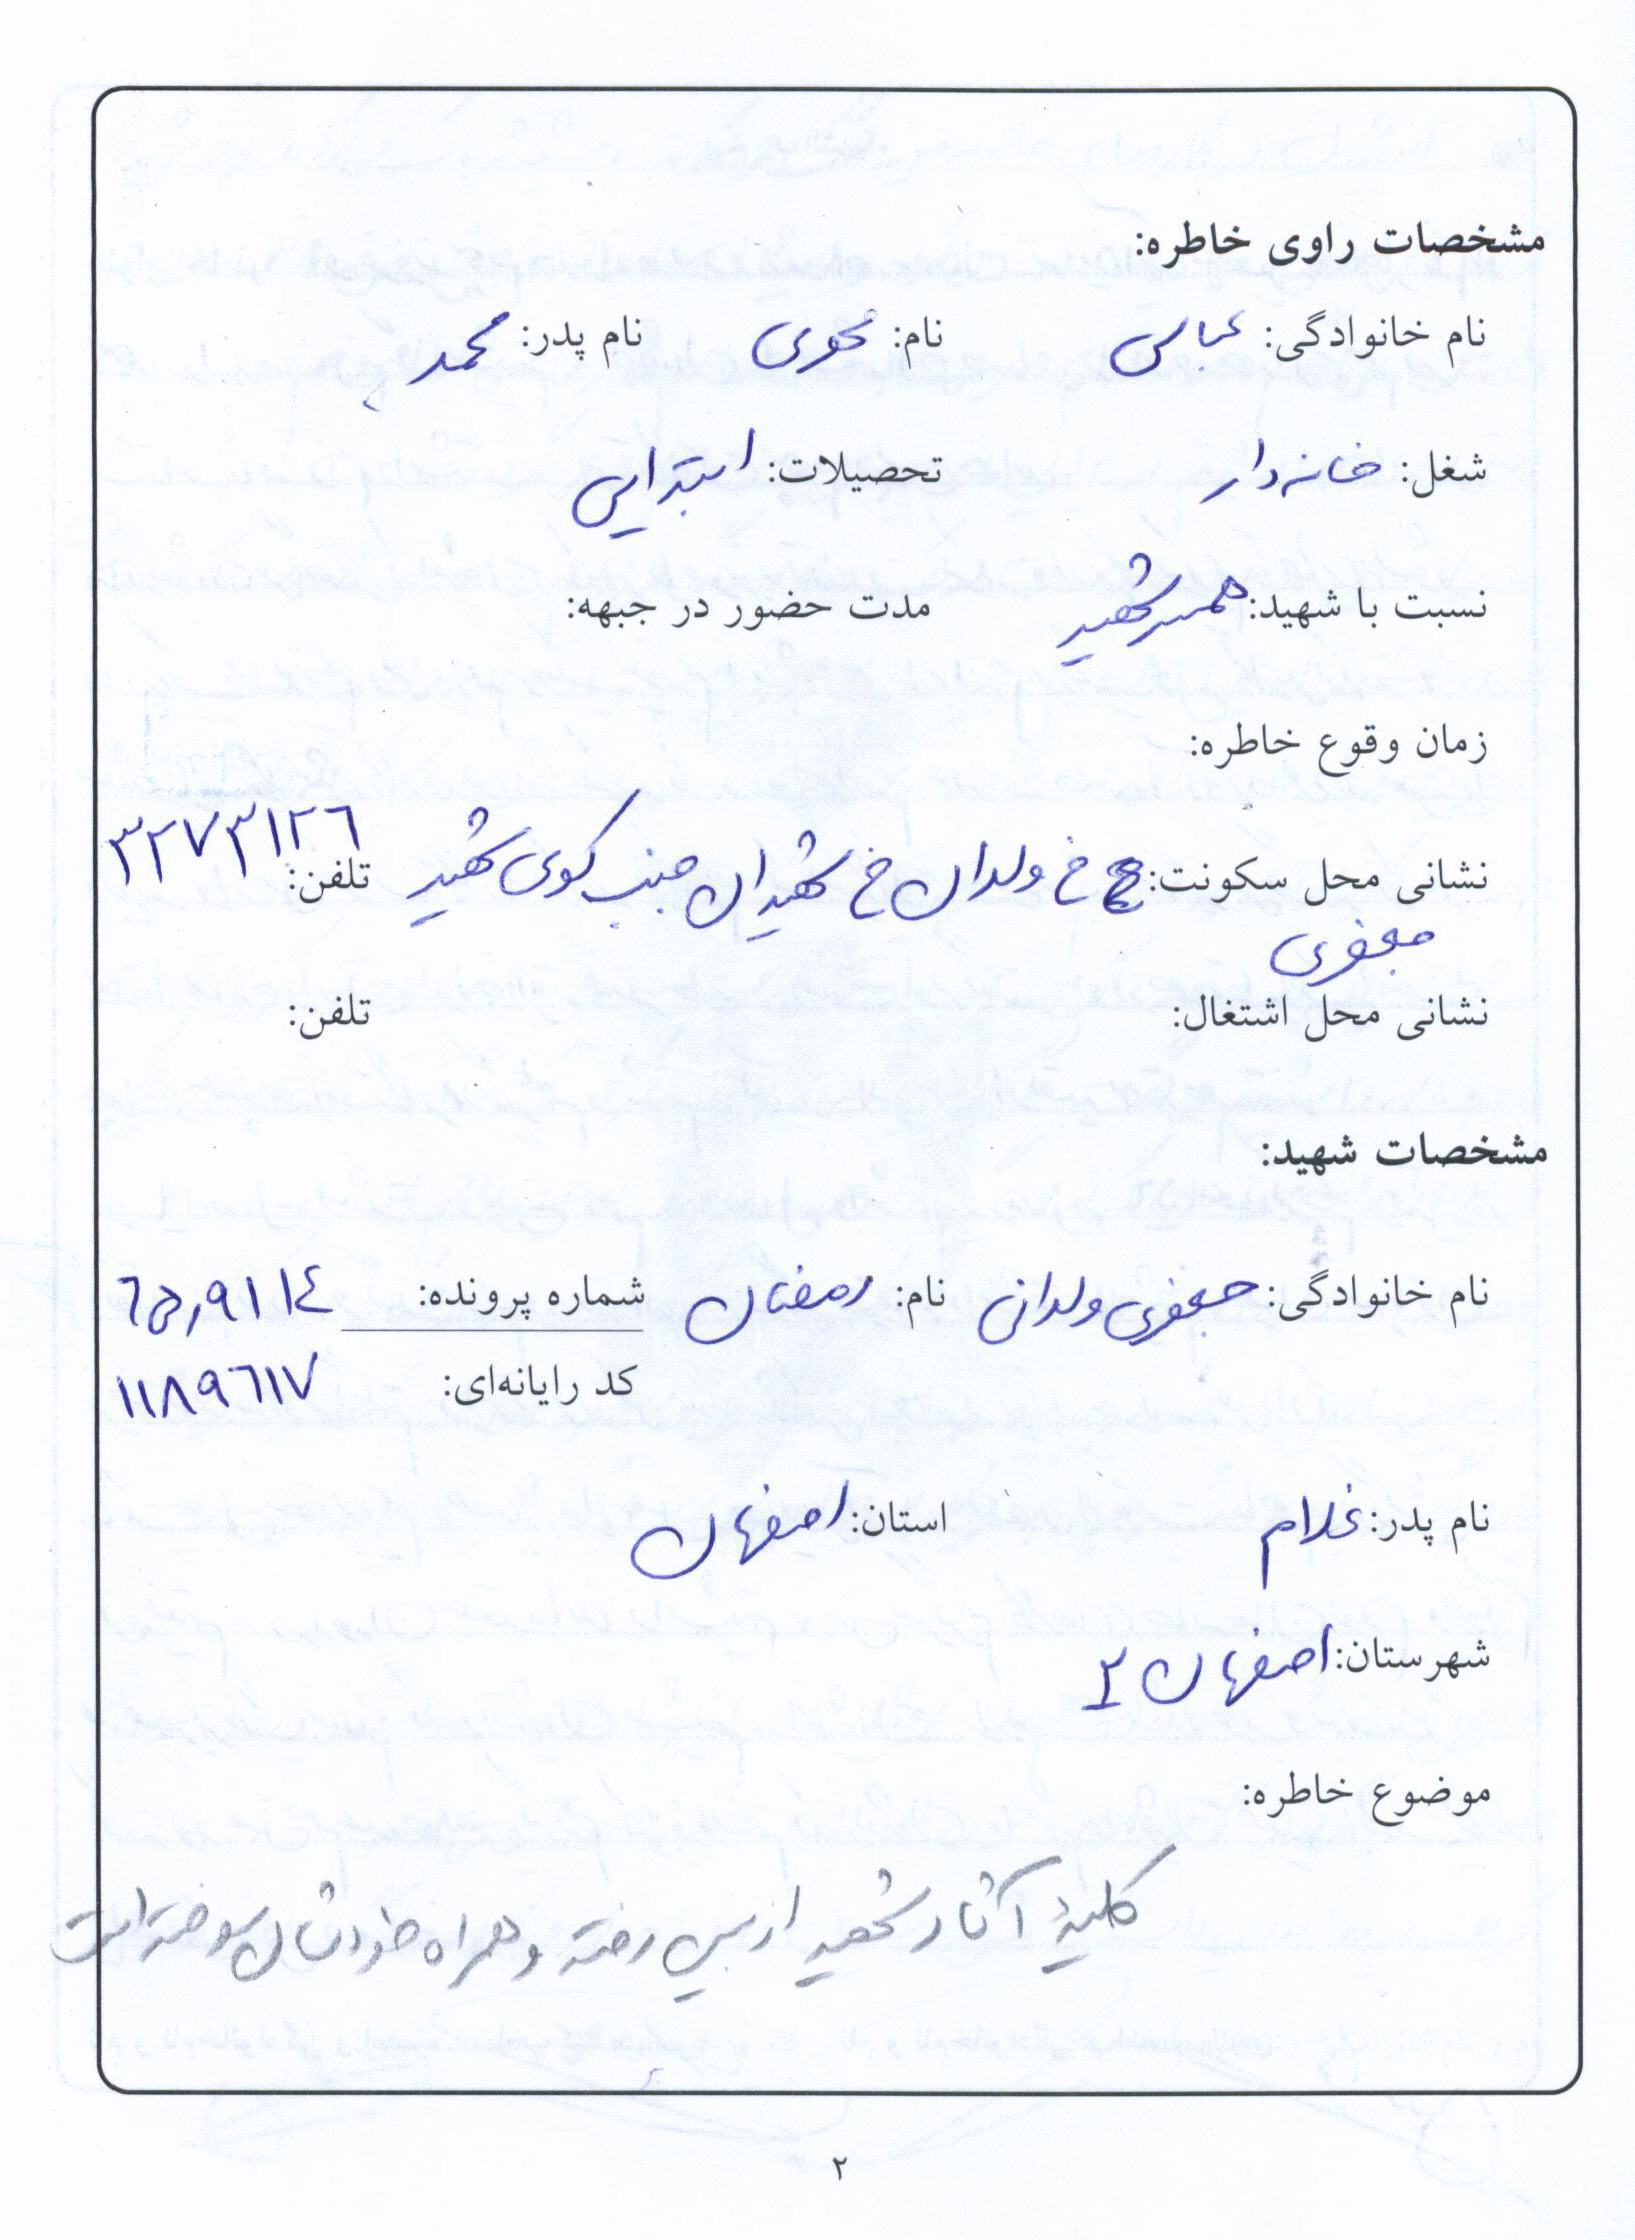 مشخصات راوی خاطره:
نام خانوادگی: عباسی نام: نام پدر: محمد
شغل: خانه‌دار تحصیلات: ابتدایی
نسبت با شهید: همسر شهید مدت حضور در جبهه:
زمان وقوع خاطره:
نشانی محل سکونت: خ ولدان خ شهیدان جنب کوی شهید تلفن: ۳۲۷۳۱۲۶
جعفری
نشانی محل اشتغال: تلفن:
مشخصات شهید:
نام خانوادگی: جعفری ولدانی نام: رمضان شماره پرونده: ۶۵,۹۱۱۴
کد رایانه‌ای: ۱۱۸۹۶۱۷
نام پدر: غلام استان: اصفهان
شهرستان: اصفهان ۲
موضوع خاطره:
کلیهٔ آثار شهید از بین رفته و همراه خودشان سوخته است
۲